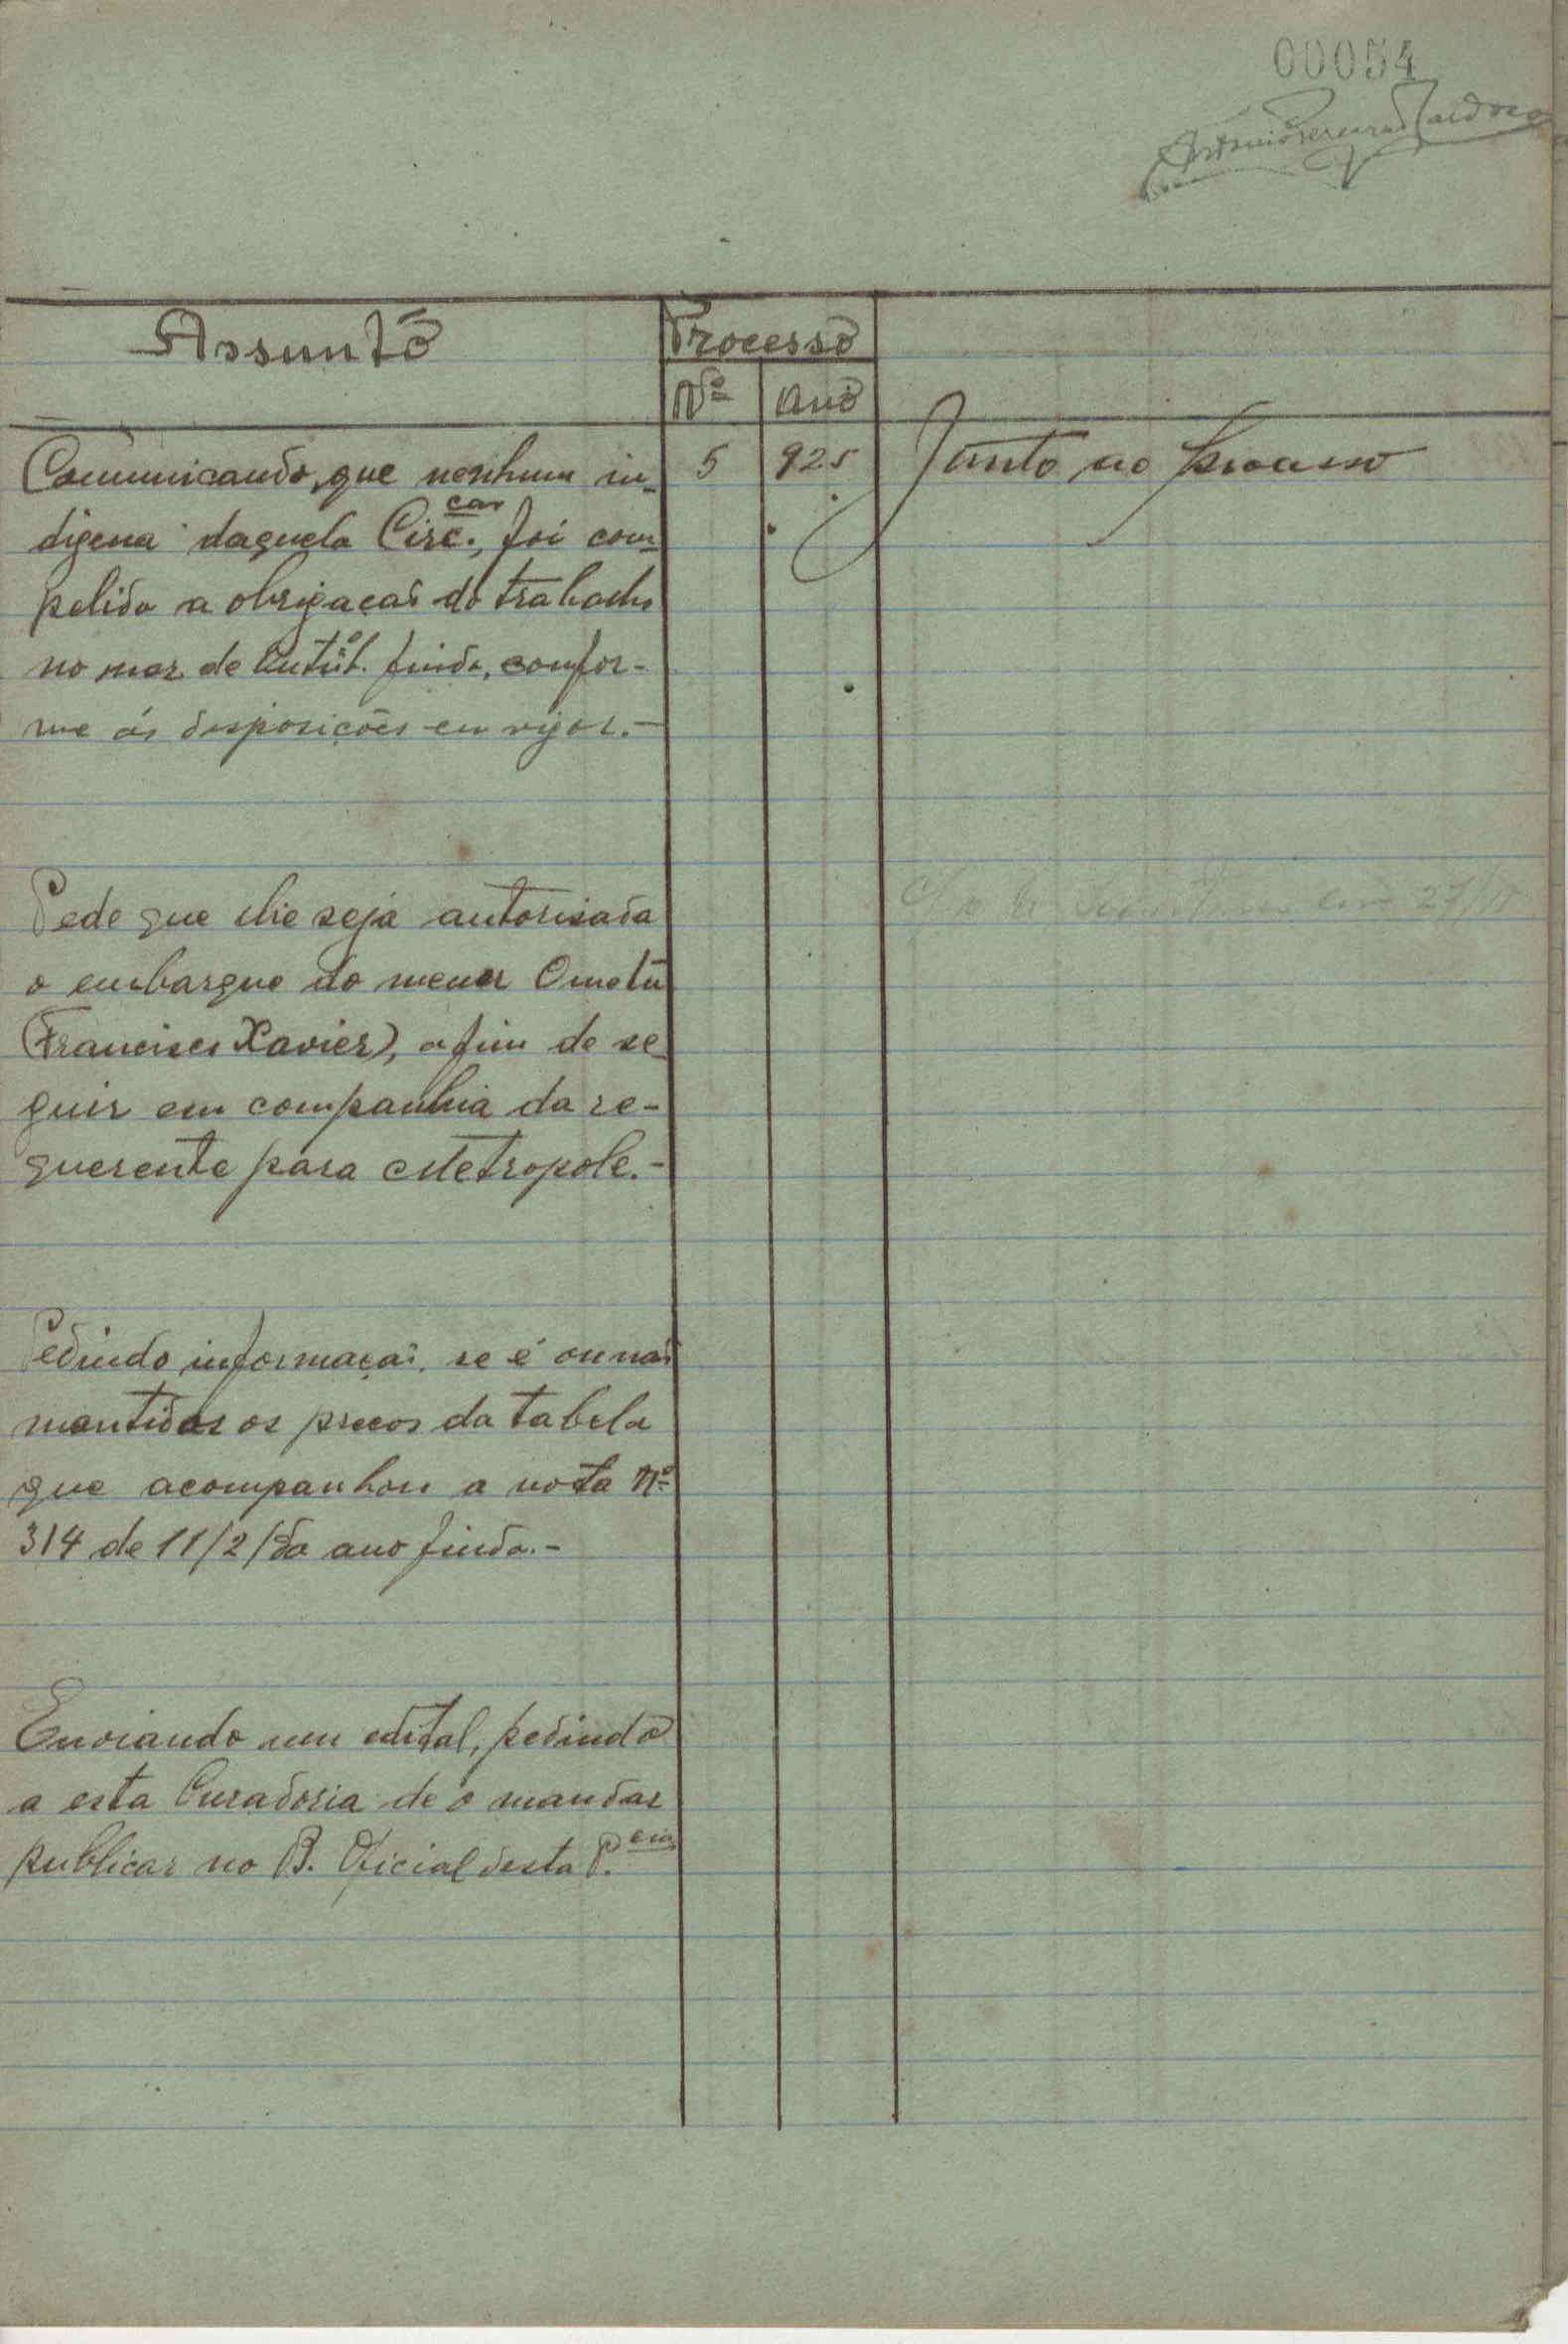 00054
Antonio Pereira Cardoso
Assunto
Processo
Nº Ano
Communicando, que nenhum in-
digena daquela Circ.car, foi com-
pelido a obrigaçaõ do trabalho
no mez de Outubº. findo, confor-
me ás disposições em vigor.-
5 925 Junto ao processo
Pede que lhe seja autorisada
o embarque do menor Ometū
(Francisco Xavier), a fim de se-
guir em companhia da re-
querente para Metropole.-
em 27/11
Pedindo informaçaõ, se é ou naõ
mantidos os precos da tabela
que acompanhou a nota Nº
314 de 11/2/do ano findo.-
Enviando um edital, pedindo
a esta Curadoria de o mandar
publicar no B. Oficial desta P.cia